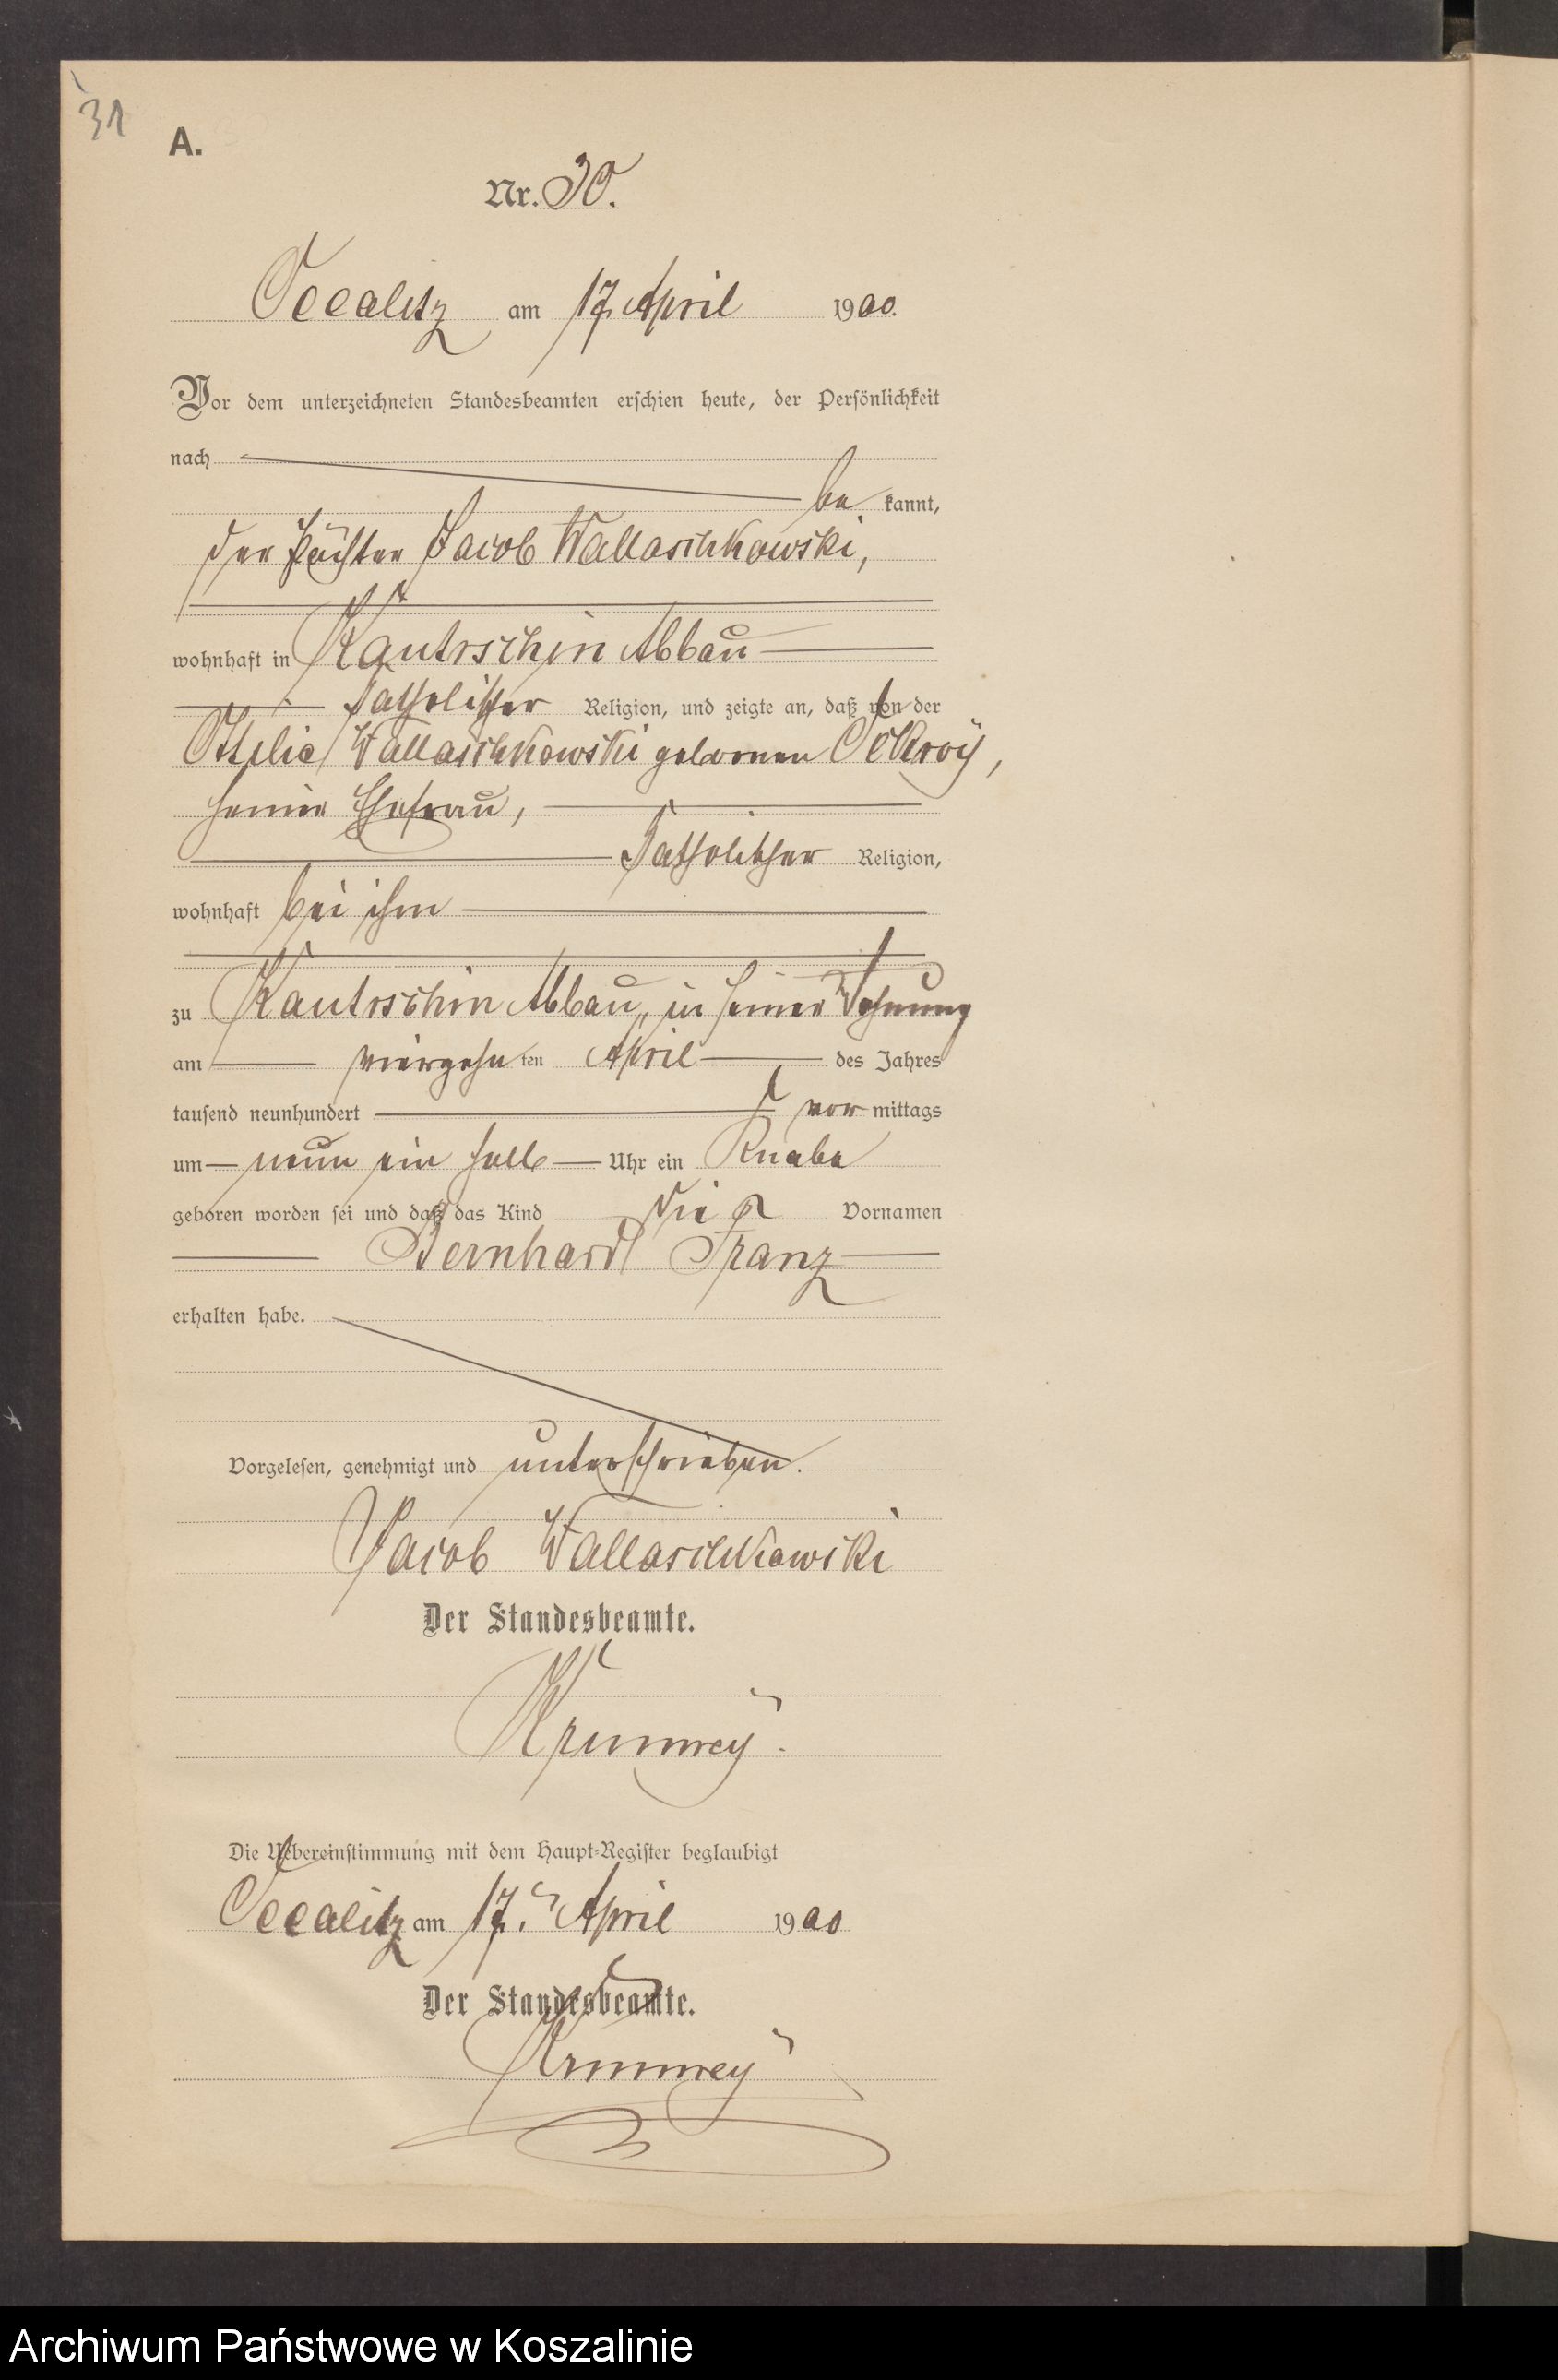 31
A.
Nr. 30.
Occalitz am 17. April 1900.
Vor dem unterzeichneten Standesbeamten erschien heute, der Persönlichkeit
nach
be kannt,
der Pächter Jacob Wallaschkowski,
wohnhaft in Kautrschin Abbau
katholischer Religion, und zeigte an, daß von der
Ottilie Wallaschkowski gebornen Ockroÿ,
seiner Ehefrau,
katholischer Religion,
wohnhaft bei ihm
zu Kautrschin Abbau, in seiner Wohnung
am vierzehn ten April des Jahres
tausend neunhundert vor mittags
um neun ein halb Uhr ein Knabe
geboren worden sei und daß das Kind die Vornamen
Bernhard Franz
erhalten habe.
Vorgelesen, genehmigt und unterschrieben.
Jacob Wallaschkowski
Der Standesbeamte.
Krummreÿ.
Die Uebereinstimmung mit dem Haupt-Register beglaubigt
Occalitz am 17. April 1900
Der Standesbeamte.
Krummreÿ
Archiwum Państwowe w Koszalinie